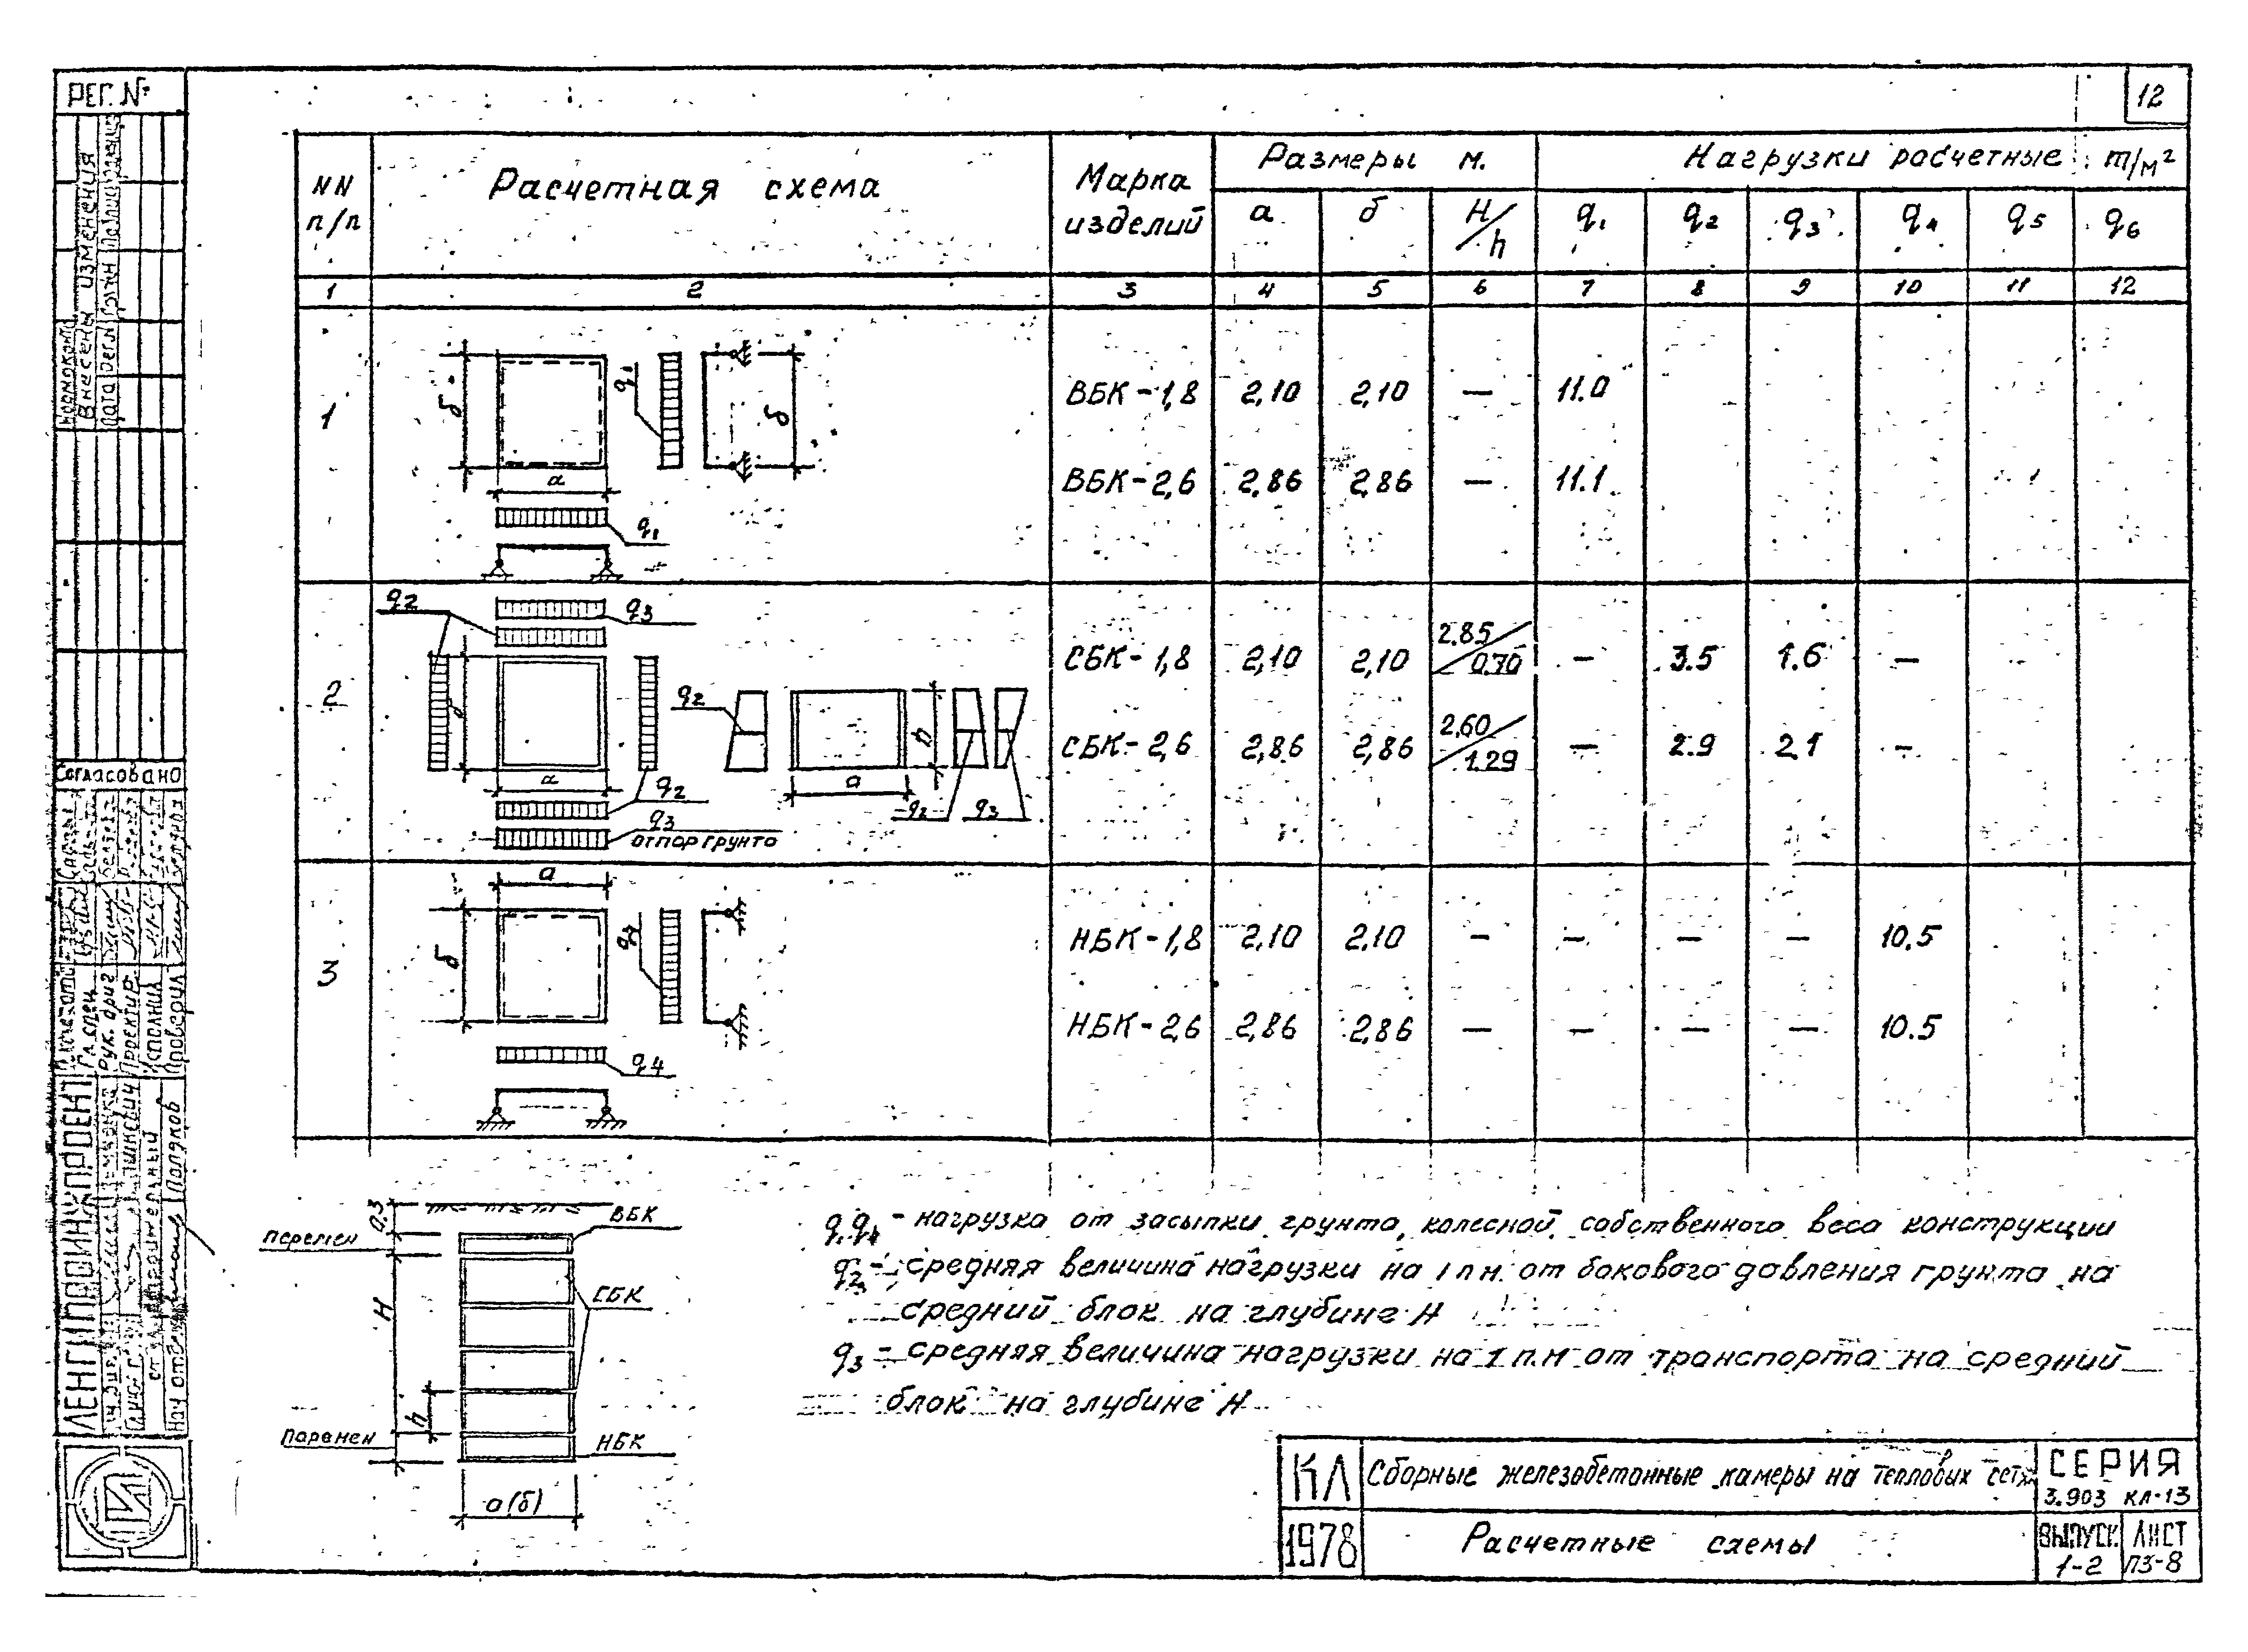 12
РЕГ. №
Внесены изменения
Согласовано
ЛЕНГИПРОИНЖПРОЕКТ
Гл. спец.
Рук. бриг
Проектир.
Исполнил
Проверил
Поляков
NN п/п
Расчетная схема
Марка изделий
Размеры м.
Нагрузки расчетные т/м²
а б H/h q1 q2 q3 q4 q5 q6
1 2 3 4 5 6 7 8 9 10 11 12
1
б а q1 q1 б
ВБК-1,8 2,10 2,10 — 11.0
ВБК-2,6 2,86 2,86 — 11.1
2
q2 q3
q2 h
а q2 а q2 q3
q3
отпор грунта
СБК-1,8 2,10 2,10 2.85/0.70 — 3.5 1.6 —
СБК-2,6 2,86 2,86 2,60/1.29 — 2.9 2.1 —
3
а
б q4
q4
НБК-1,8 2,10 2.10 — — — — 10.5
НБК-2,6 2,86 2,86 — — — — 10.5
0.3 ВБК
перемен
H СБК
h
перемен НБК
а(б)
q1 q4 - нагрузка от засыпки грунта, колесной, собственного веса конструкции
q2 - средняя величина нагрузки на 1 п.м. от бокового давления грунта на
средний блок на глубине H
q3 - средняя величина нагрузки на 1 п.м от транспорта на средний
блок на глубине H
КЛ
Сборные железобетонные камеры на тепловых сетях
СЕРИЯ
3.903 КЛ-13
1978
Расчетные схемы
ВЫПУСК
1-2
ЛИСТ
ПЗ-8